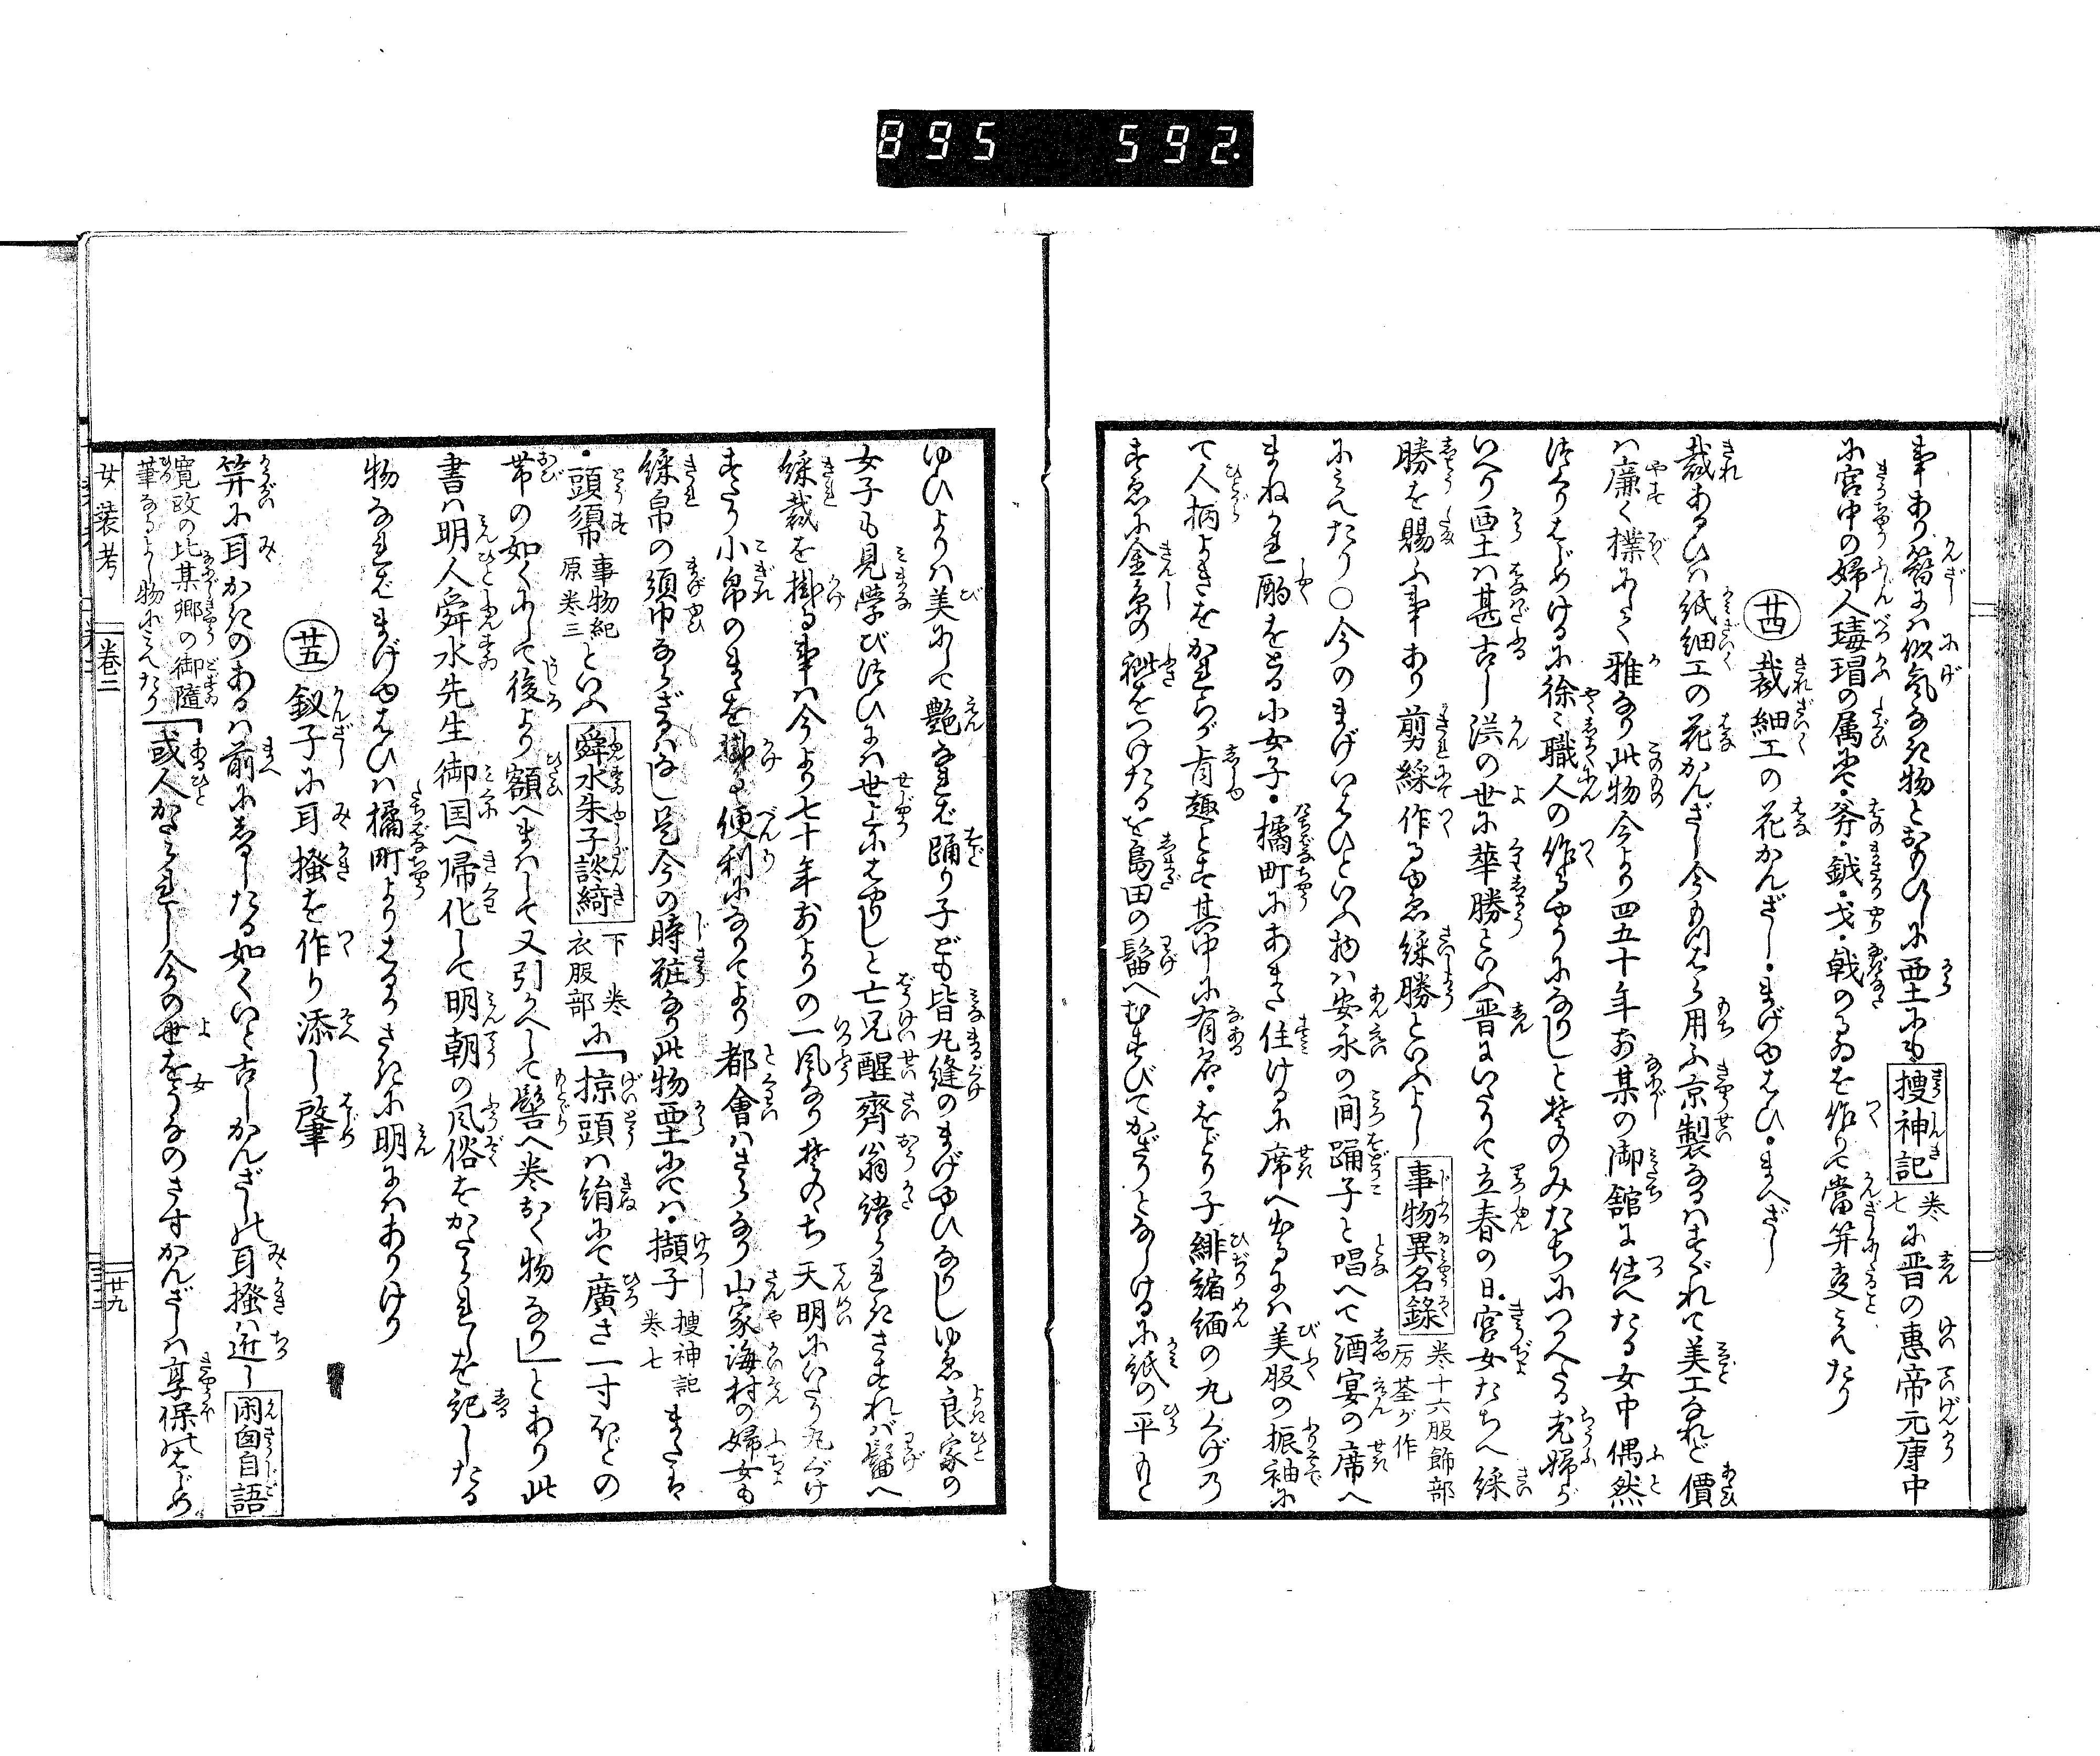 895 592.
事あり簪には似気なき物とおもひしに西土にも搜神記巻七に晋の惠帝元康中
に宮中の婦人瑇瑁の属にて・斧・鉞・戈・戟のるゐを作りて當笄事みえたり
廿四 裁細工の花かんざし・まげゆはひ・まへざし
裁あるひは紙細工の花かんざし今もつはら用ふ京製なるはすぐれて美工なれど價
は廉く樸にて雅なり此物今より四五十年前某の御舘に仕へたる女中偶然
作りはじめけるに徐〻職人の作るやうになりしと其のみたちにつかへたる老婦が
いへり西土は甚古し漢の世に華勝といふ晋にいたりて立春の日官女たちへ綵
勝を賜ふ事あり剪綵作るゆゑ綵勝といふよし事物異名錄巻十六服飾部厉荃が作
にみえたり○今のまげいはひといふ物は安永の間踊子と唱へて酒宴の席へ
まねかれ酌をとる小女子・橘町にあまた住けるに席へ出るには美服の振袖に
て人柄よきをかれらが肯趣とす其中に有名・をどり子緋縮緬の丸くげの
すゑに金糸の総をつけたるを島田の髷へむすびてかざりとなしけるに紙の平もと
ゆひよりは美にして艶なれば踊り子ども皆丸縫のまげゆひなりしゆゑ良家の
女子も見學び结ひには世上にはやりしと亡兄醒齊翁語られきされば髷へ
綵裁を掛る事は今より七十年前よりの一風なり其のち天明にいたり丸ぐけ
すたり小帛のきれを掛る便利になりてより都會はさらなり山家海村の婦女も
綵帛の須巾ならざるはなし是今の時粧なり此物西土にては・擷子搜神記巻七または
・頭須巾事物紀原巻三といふ舜水朱子談綺下巻衣服部に「掠頭は絹にて廣さ一寸ほどの
帯の如くにして後より額へまはして又引かへして髻へ巻おく物なり」とあり此
書は明人舜水先生御国へ帰化して明朝の風俗をかたられしを記したる
物なればまげゆはひは橘町よりはるかさきに明にはありけり
廿五 釵子に耳搔を作り添し肇
笄に耳かきのあるは前にしるしたる如くいと古しかんざしに耳搔は近し閑窗自語
寛政の比某郷の御隨筆なるよし物にみえたり「或人かたられし今の世をうなのさすかんざしは享保のはじめ
女装考 巻二 廿九